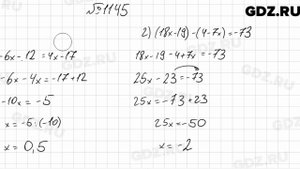 №1145
GDZ.RU
-6x-12=4x-17
-6x-4x=-17+12
-10x=-5
x=-5:(-10)
x=0,5
2) (18x-19)-(4-7x)=-73
18x-19-4+7x=-73
25x-23=-73
25x=-73+23
25x=-50
x=-2
GDZ.RU